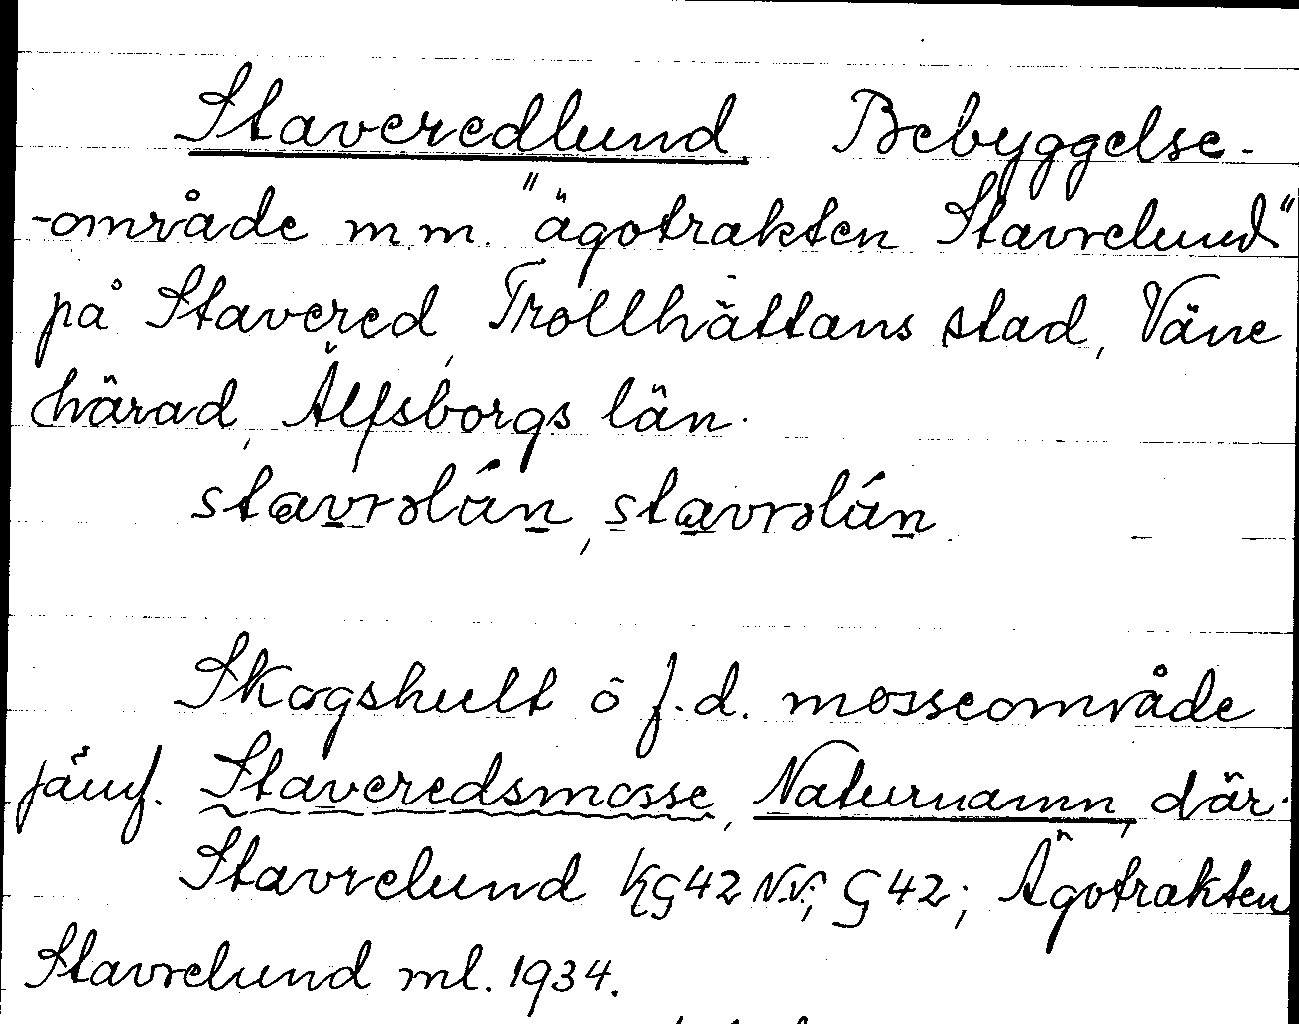 Staveredlund Bebyggelse-
-område m.m. "ägotrakten Stavrelund"
på Stavered, Trollhättans stad, Väne
härad, Älfsborgs län.
stavrəlún, stavrəlún.
Skogshult ö f.d. mosseområde
jämf. Staveredsmosse, Naturnamn, där.
Stavrelund KG42 N.V.; G 42; Ägotrakten
Stavrelund ml. 1934.